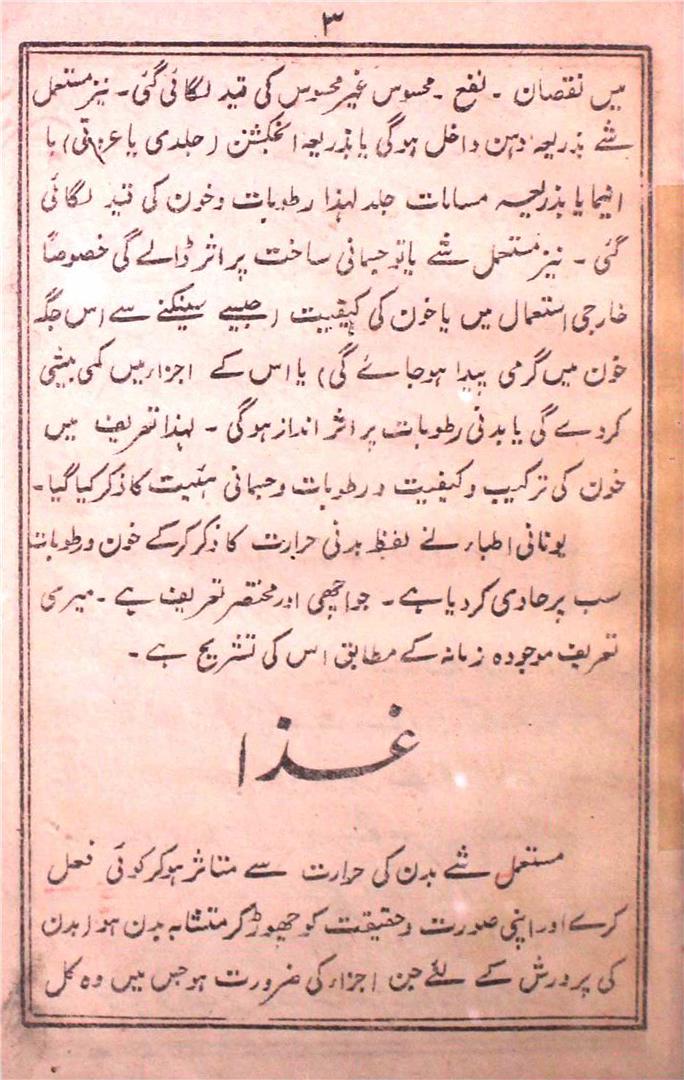 ۳
میں نقصان ۔ نفع ۔ محسوس غیر محسوس کی قید لگائی گئی ۔ نیز مستعمل
شے بذریعہ دہن داخل ہوگی یا بذریعہ انجکشن (جلدی یا عرقی) یا
انیما یا بذریعہ مسامات جلد لہذا رطوبات و خون کی قید لگائی
گئی ۔ نیز مستعمل شے یا تو جسمانی ساخت پر اثر ڈالے گی خصوصاً
خارجی استعمال میں یا خون کی کیفیت (جیسے سینکنے سے اس جگہ
خون میں گرمی پیدا ہو جائے گی) یا اس کے اجزار میں کمی بیشی
کردے گی یا بدنی رطوبات پر اثر انداز ہوگی ۔ لہذا تعریف میں
خون کی ترکیب و کیفیت و رطوبات و جسمانی ہئیت کا ذکر کیا گیا ۔
یونانی اطباء نے لفظ بدنی حرارت کا ذکر کرکے خون و رطوبات
سب پر حاوی کر دیا ہے ۔ جو اچھی اور مختصر تعریف ہے ۔ میری
تعریف موجودہ زمانہ کے مطابق اس کی تشریح ہے ۔
غذا
مستعمل شے بدن کی حرارت سے متاثر ہوکر کوئی فعل
کرے اور اپنی صورت و حقیقت کو چھوڑ کر متشابہ بدن ہو (بدن
کی پرورش کے لئے جن اجزاء کی ضرورت ہو جس میں وہ کل